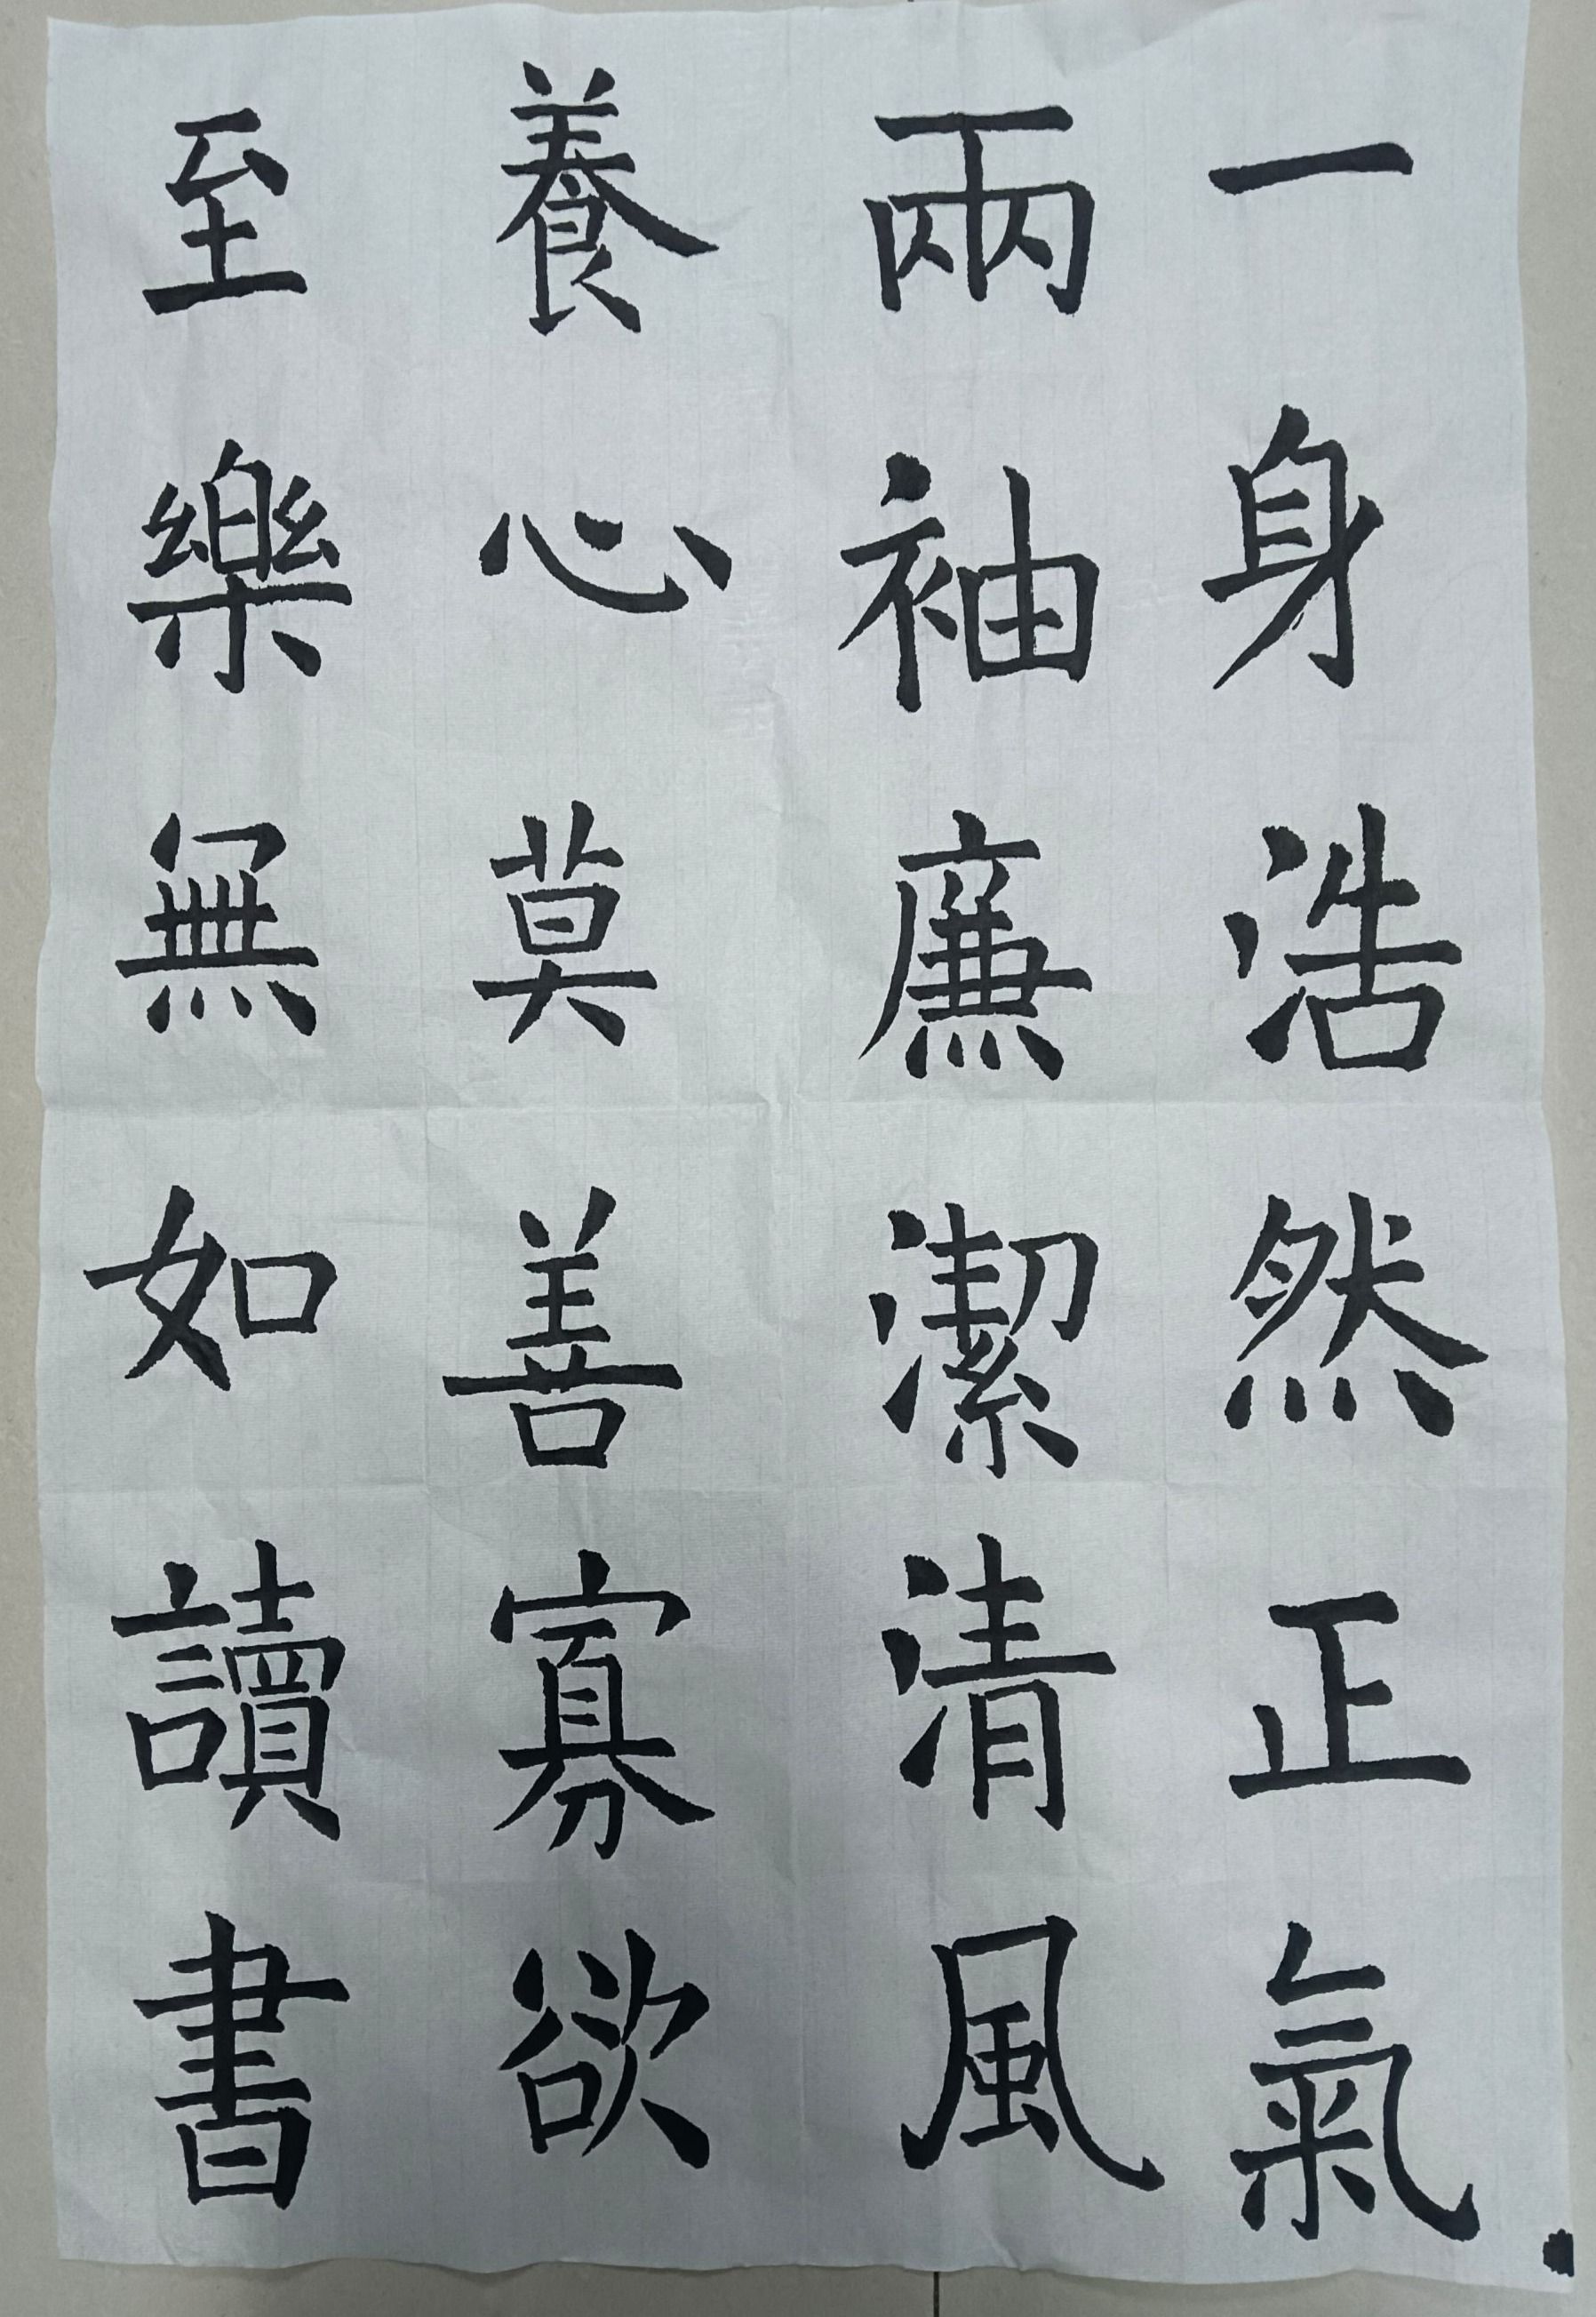 一身浩然正氣
兩袖廉潔清風
養心莫善寡欲
至樂無如讀書